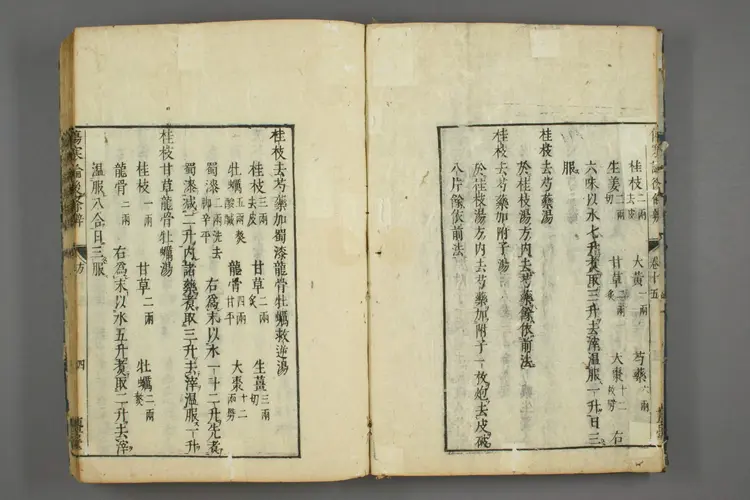 桂枝二兩去皮 大黃一兩 芍藥六兩
生姜二兩切 甘草二兩炙 大棗十二枚劈 右
六味以水七升煮取三升去滓溫服一升日三
服
桂枝去芍藥湯
於桂枝湯方内去芍藥餘依前法
桂枝去芍藥加附子湯
於桂枝湯方内去芍藥加附子一枚炮去皮破
八片餘依前法
卷十五
桂枝去芍藥加蜀漆龍骨牡蠣救逆湯
桂枝三兩去皮 甘草二兩炙 生薑三兩切
牡蠣五兩熬酸鹹 龍骨四兩甘平 大棗十二
蜀漆二兩洗去脚辛平 右為末以水一斗二升先煮
蜀漆減二升内諸藥煮取三升去滓溫服一升
桂枝甘草龍骨牡蠣湯
桂枝一兩 甘草二兩 牡蠣二兩熬
龍骨二兩 右為末以水五升煮取二升去滓
溫服八合日三服
傷寒論後條辨
方
四